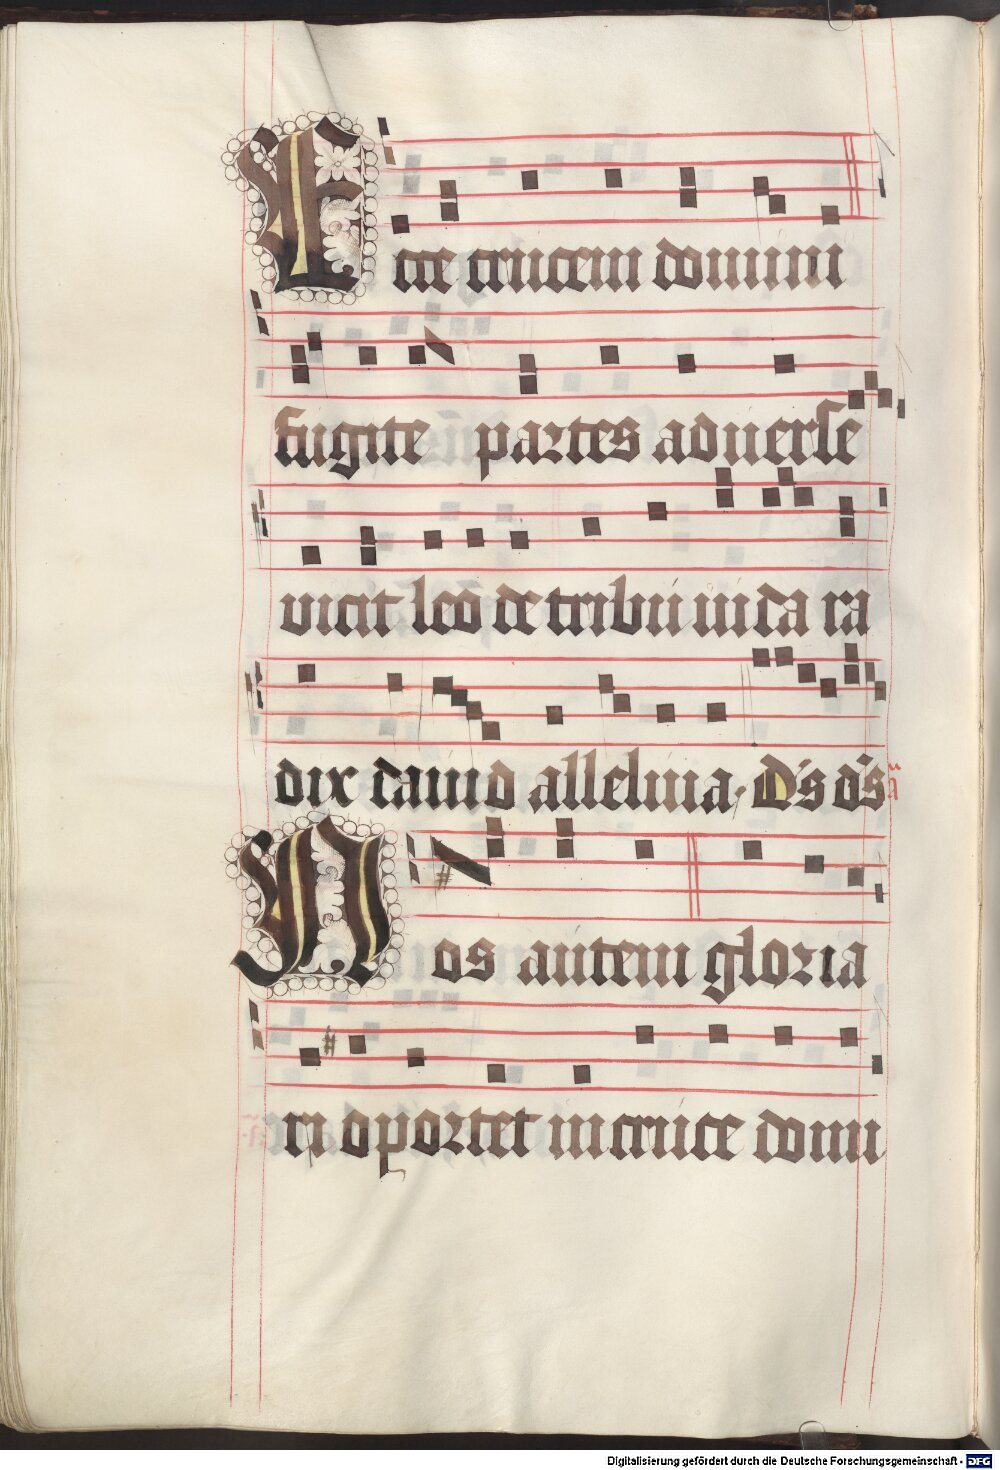 Ecce crucem domini
fugite partes aduerse
vicit leō de tribu iuda ra
dix dauid alleluia. D's d's
a
Nos autem gloria
ri oportet in cruce domi
Digitalisierung gefördert durch die Deutsche Forschungsgemeinschaft - DFG